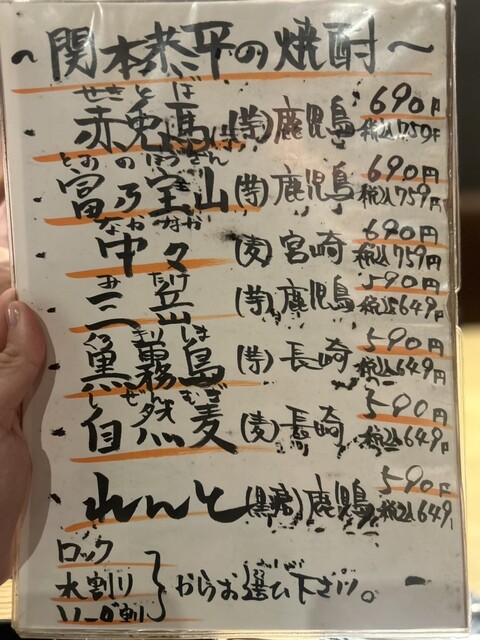 ～関本恭平の焼酎～
せきとば
赤兎馬 (芋) 鹿児島 690円 税込759円
とみのほうざん
富乃宝山 (芋) 鹿児島 690円 税込759円
なかなか
中々 (麦) 宮崎 690円 税込759円
みたけ
三岳 (芋) 鹿児島 590円 税込649円
くろきりしま
黒霧島 (芋) 長崎 590円 税込649円
しぜんむぎ
自然麦 (麦) 長崎 590円 税込649円
れんと (黒糖) 鹿児島 590円 税込649
ロック
水割り
ソーダ割
からお選び下さい。